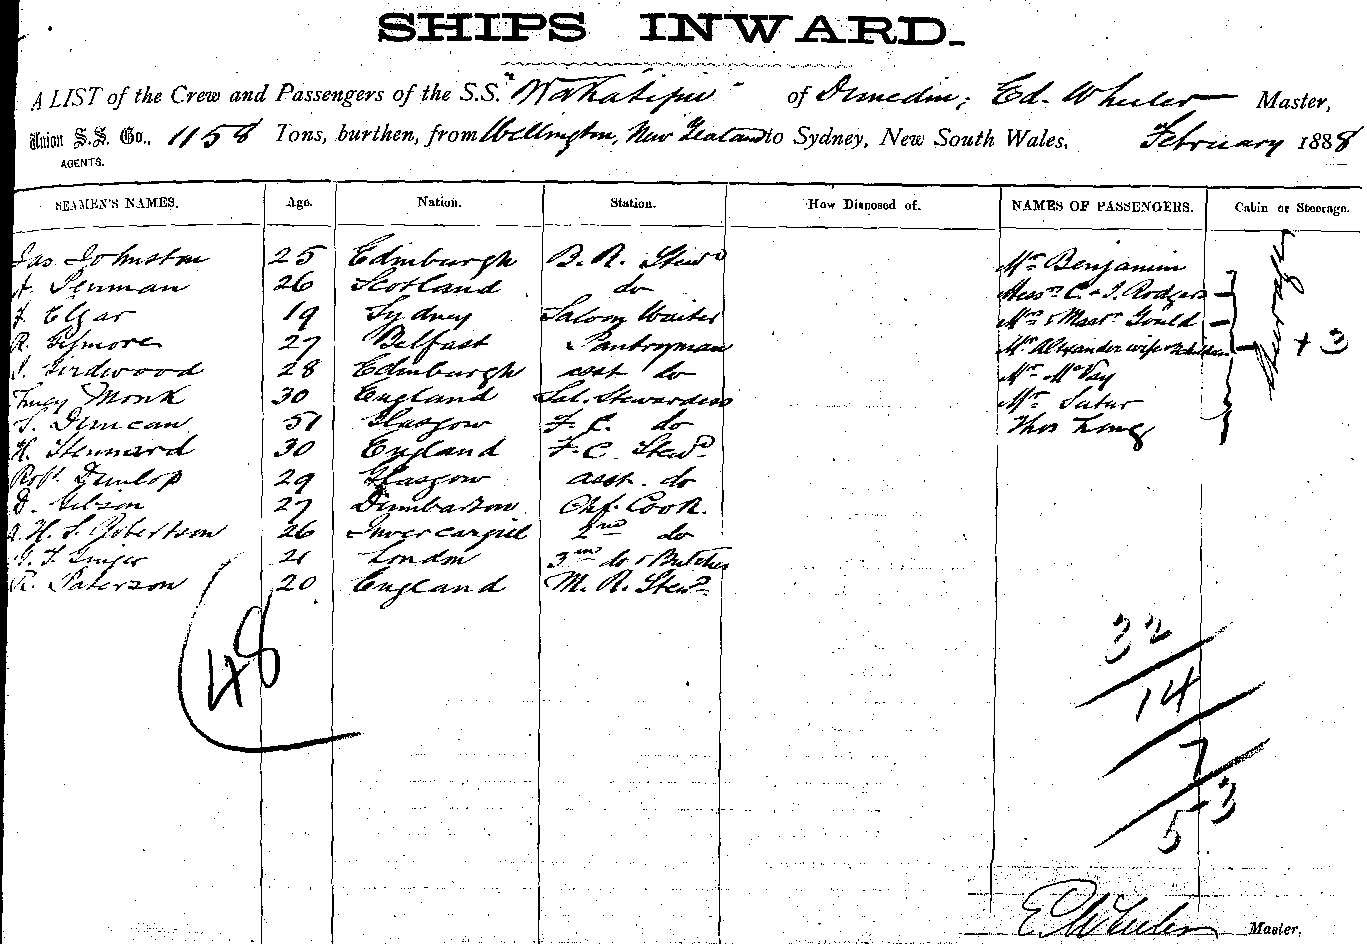 SHIPS INWARD.
A LIST of the Crew and Passengers of the S.S. "Wakatipu" of Dunedin, Ed. Wheeler Master,
Union S.S. Co., 1158 Tons, burthen, from Wellington, New Zealand to Sydney, New South Wales, February 1888
AGENTS.
SEAMEN'S NAMES. Age. Nation. Station. How Disposed of. NAMES OF PASSENGERS. Cabin or Steerage.
Jas Johnston 25 Edinburgh B. R. Stewd Mr Benjamin
A. Penman 26 Scotland do Messrs C. & J. Rodgers
J. Elgar 19 Sydney Saloon Waiter Mrs & Mastr Gould
R. Gilmore 27 Belfast Pantryman Mr Alexander wife &
J. Girdwood 28 Edinburgh asst do Mr McVay
Monk 30 England Sal. Stewardess Mr
S. Duncan 51 Glasgow F. C. do Thos Long
H. Stennard 30 England F. C. Stewd
Robt Dunlop 29 Glasgow asst. do
D. Gibson 27 Dumbarton Chf. Cook.
H. S. Robertson 26 Invercargill 2nd do
G. F. Ginger 21 London 3rd do & Butcher
R. Paterson 20 England M. R. Stewd
Steerage
+ 3
48
32
14
7
53
E Wheeler Master.